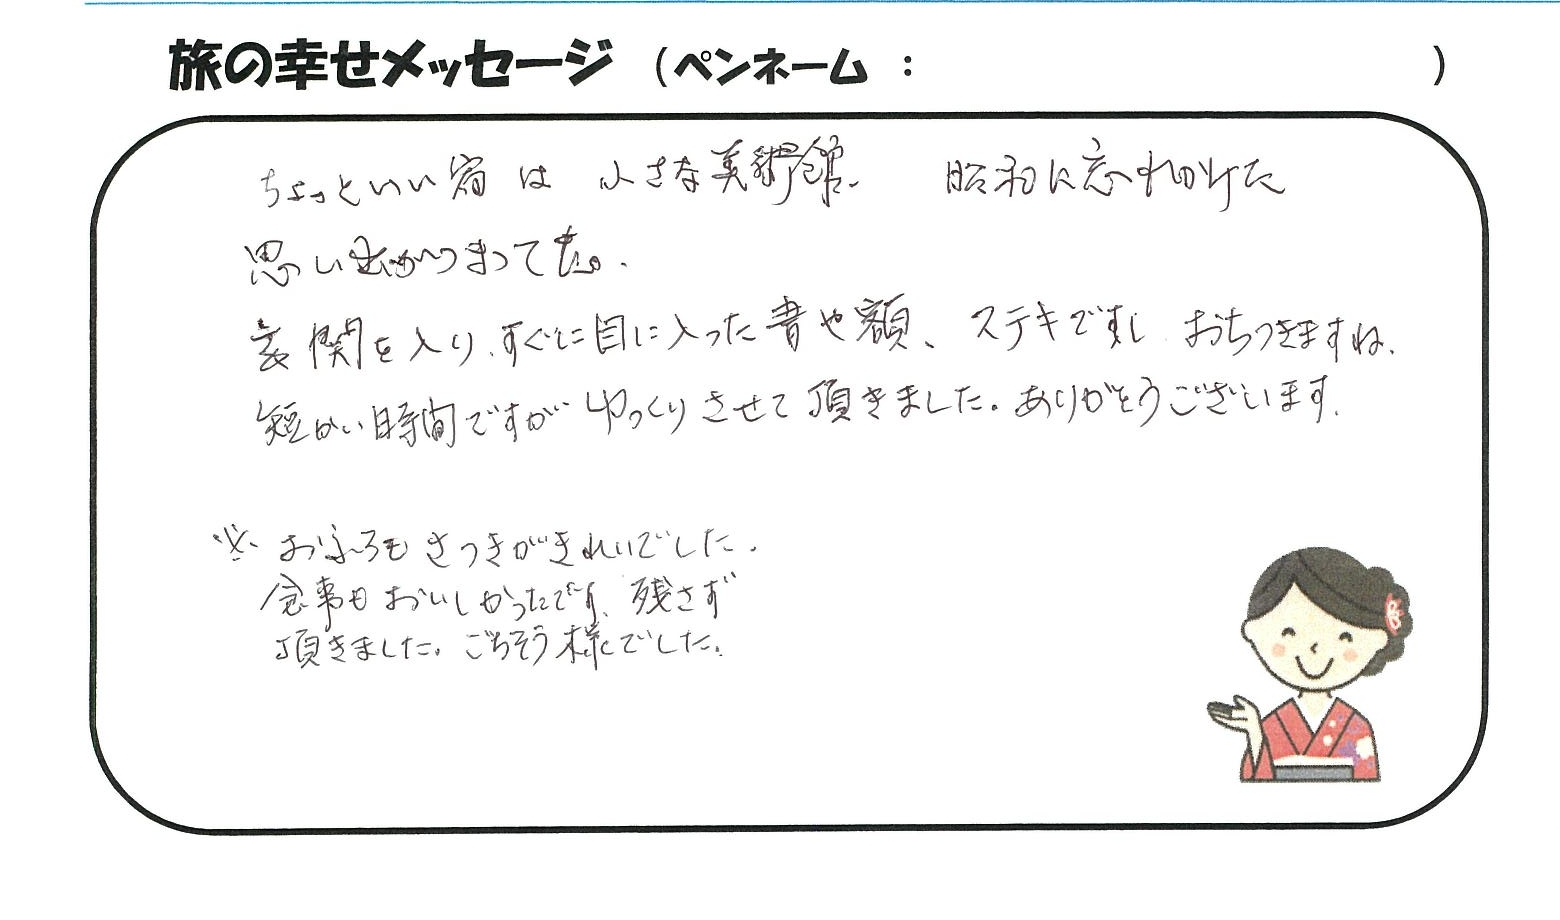 旅の幸せメッセージ (ペンネーム : )
ちょっといい宿は 小さな美術館. 昭和に忘れかけた
思い出がつまってた。
玄関を入り、すぐに目に入った書や額、ステキですし おちつきますね.
短かい時間ですが ゆっくりさせて頂きました。ありがとうございます.
※ おふろも さつきがきれいでした.
食事も おいしかったです、残さず
頂きました。ごちそう様でした。